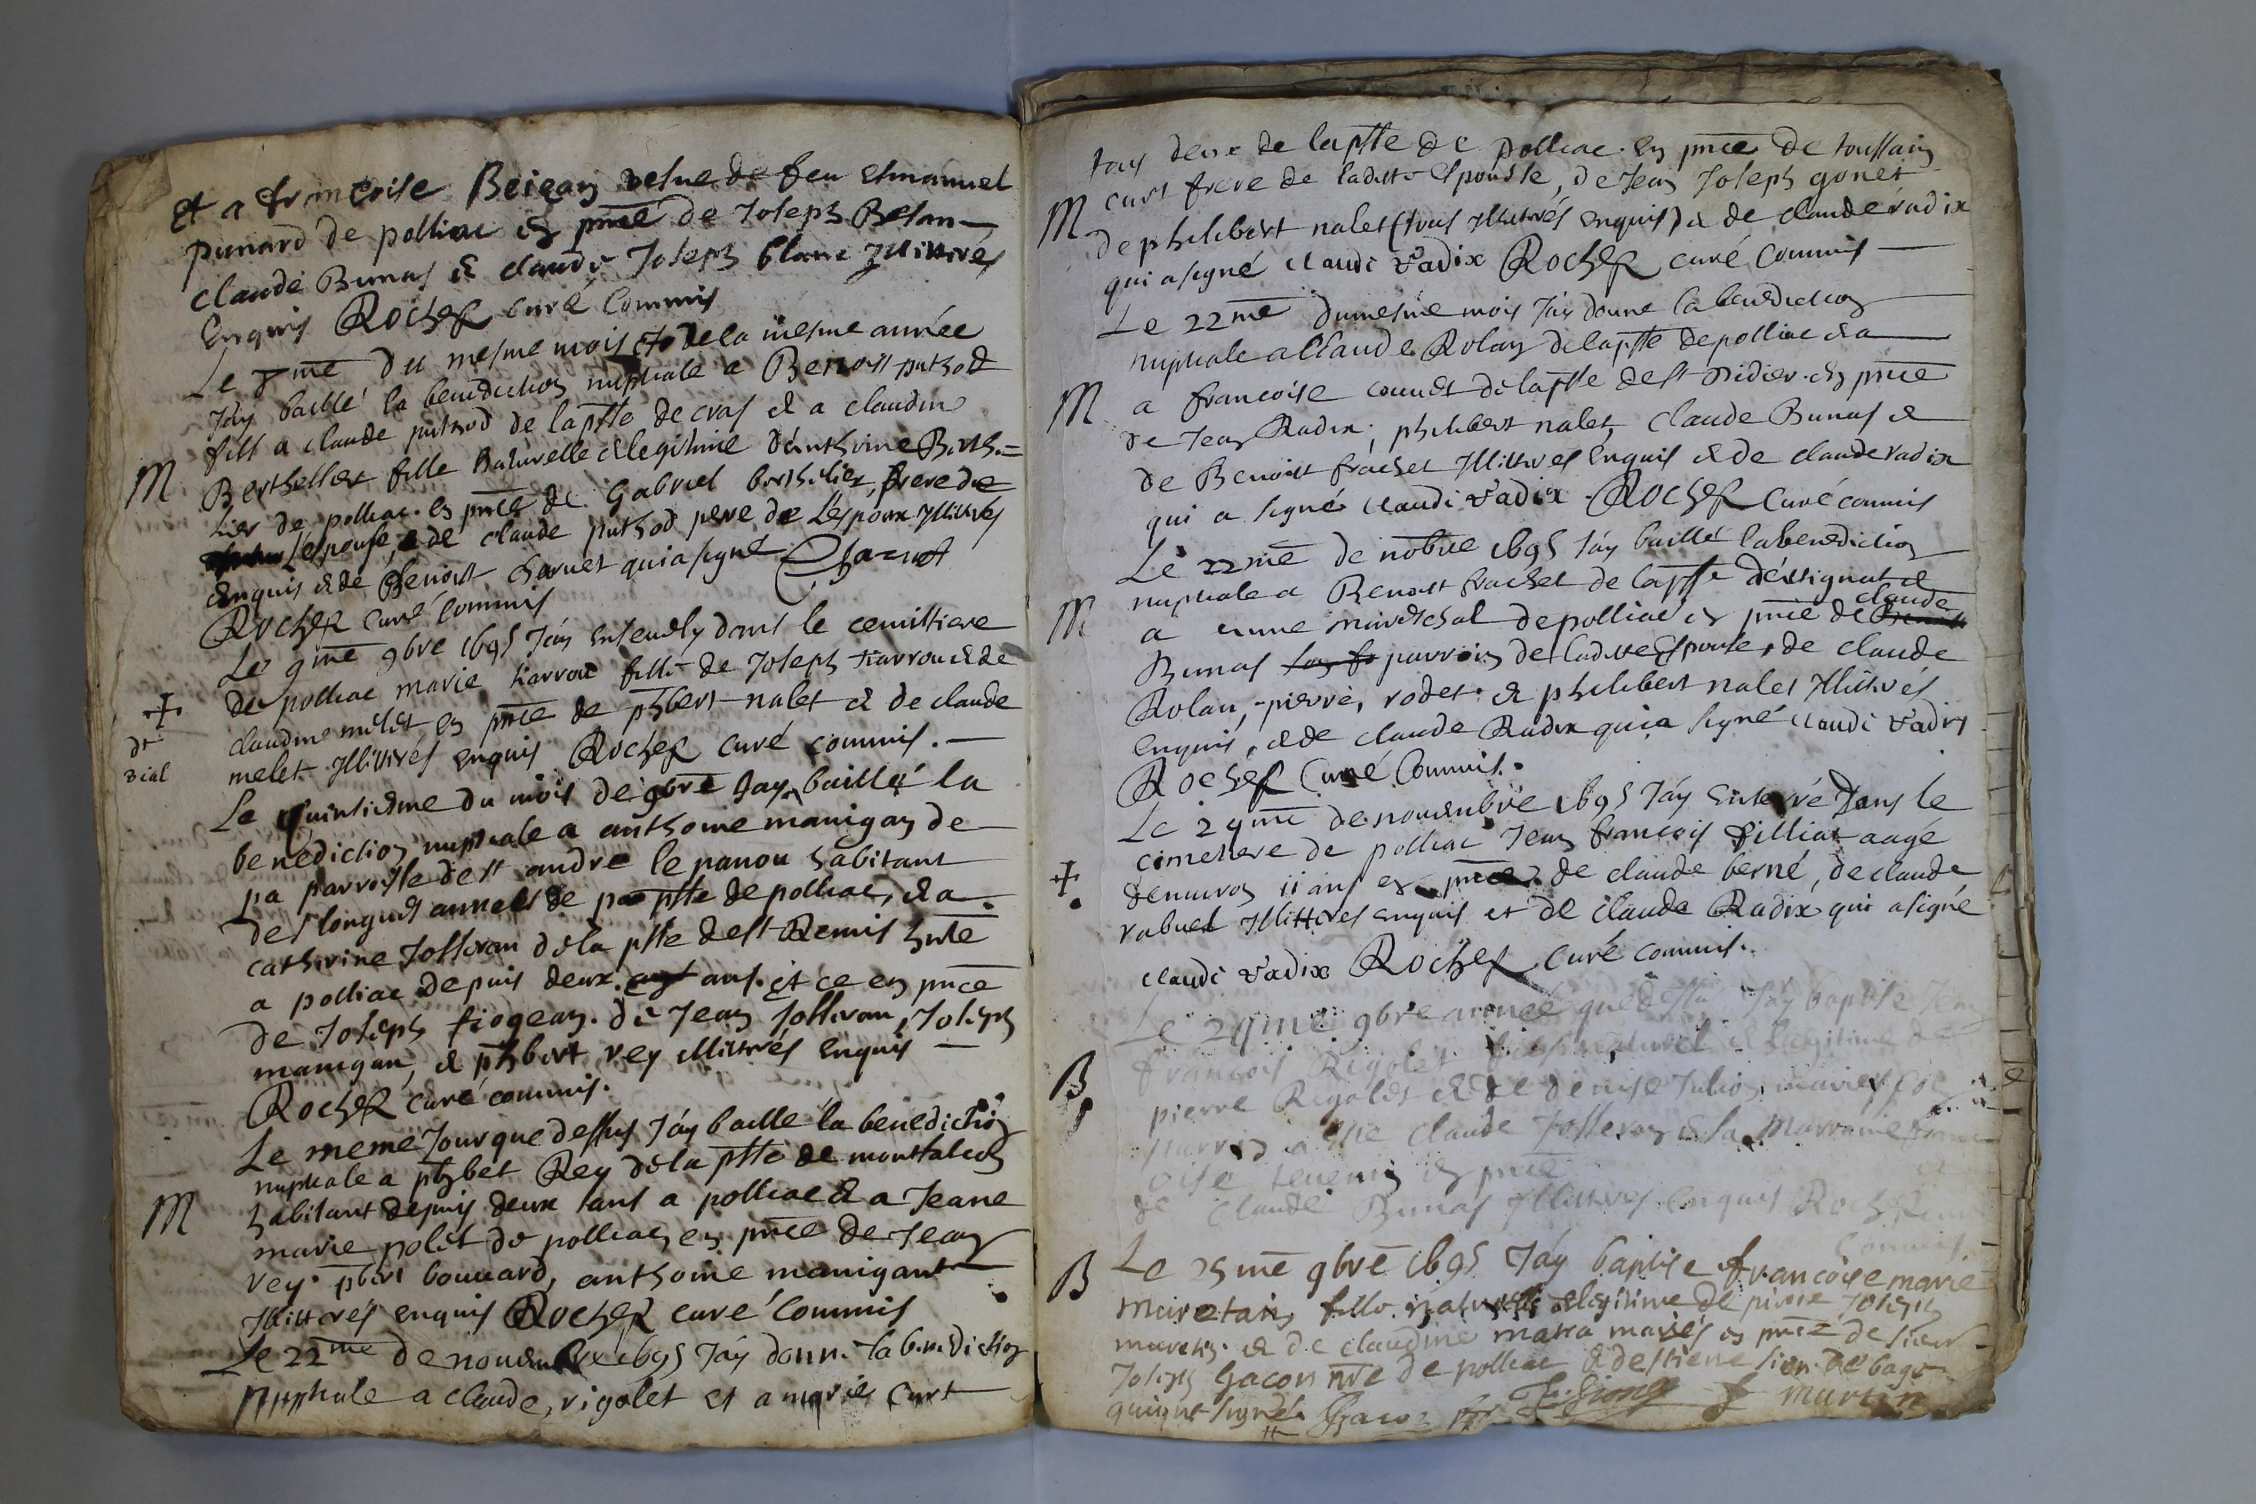 Et a francoise Beigan vefue de feu Emanuel
punard de polliac en pnce de Joseph Besan
claude Bunas & claude Joseph blanc Jllittrés
Enquis Rocher curé Commis
Le 8me du mesme mois Et de la mesme année
Jáy baillé la benediction nuptiale a Benoist puthod
fils a claude puthod de la psse de cras & a claudine
M
Berthellier fille naturelle & legitime d'anthoine Berthe=
lier de polliac en pnce de Gabriel berthelier, frere de
Lespouse, & de claude puthod pere de Lespoux Jllittrés
Enquis & de Benoist charuet qui a signé Charuet
Rocher Curé Commis
Le 9me 9bre 1695 Jáy Enseuely dans le cemittiere
de polliac marie fille de Joseph & de
claudine melet en pnce de phbert nalet & de claude
melet Jllittrés enquis Rocher Curé commis.
Le quinsiesme du mois de 9bre Jay baillé la
benediction nuptiale a anthoine manigan de
La parroisse de st andre le panou habitant
des longues annees de psse de polliac, & a
catherine Josseran de la psse de st Remis
a polliac depuis deux ans. et ce en pnce
de Joseph fiogean. de Jean Josseran, Joseph
manigan, & phbert rey Jllittrés Enquis
Rocher curé commis.
Le meme Jour que dessus Jáy baillé la benediction
nuptiale a phbet Rey de la psse de montfalcon
M
habitant depuis deux tans a polliac & a Jeane
marie polet de polliac, en pnce de Jean
rey. pbert bouuard, anthoine manigant
Jllittrés enquis Rocher curé Commis
Le 22me de nouembre 1695 Jáy donné la benediction
Nuptiale a claude, rigolet et a marie curt
tous deux de la psse de polliac. En pnce de toussain
curt frere de laditte Espousse, de Jean Joseph gonet
M
de philibert nalet (tous Jllittrés enquis) & de claude radix
qui a signé claude radix Rocher curé Commis
Le 22me du mesme mois Jáy donne la benediction
nuptiale a Claude Rolan de la psse de polliac & a
M
a francoise de la psse de st Didier. en pnce
de Jean Radix, philibert nalet, Claude Bunas &
de Benoist frachet Jllittrés Enquis & de claude radix
qui a signé claude radix Rocher Curé commis
Le 22me de nobvre 1695 Jáy baillé la benediction
nuptiale a Benoist frachet de la psse d'attignat &
M
a anne mareschal de polliac en pnce de claude
Bunas parroin de laditte Espouse, de claude
Rolan, pierre, rodet & philibert nalet Jllittrés
Enquis, & de claude Radix qui a signé claude radix
Rocher Curé Commis.
Le 29me de nouembre 1695 Jáy Enterré Dans le
cimettere de polliac Jean francois filliat aagé
denuiron 11 ans en pnce de claude berné, de claude
rabuel Jllittrés enquis et de claude Radix qui a signé
claude radix Rocher Curé commis.
Le 29me 9bre année que dessus Jáy baptise Jean
B
francois Rigolet fils naturel & legitime de
pierre Rigolet & de denise Julion mariés, le
parrin a esté claude Josseran & la marraine franc
oise en pnce
de Claude Bunas Jllittrés Enquis Rocher curé
Commis.
B
Le 25me 9bre 1695 Jáy baptise francoise marie
Muretain fille naturelle & legitime de pierre Joseph
& de claudine marra mariés en pnce de sieur
Joseph Gacon nre de polliac & de
qui ont signés Gacon Martin